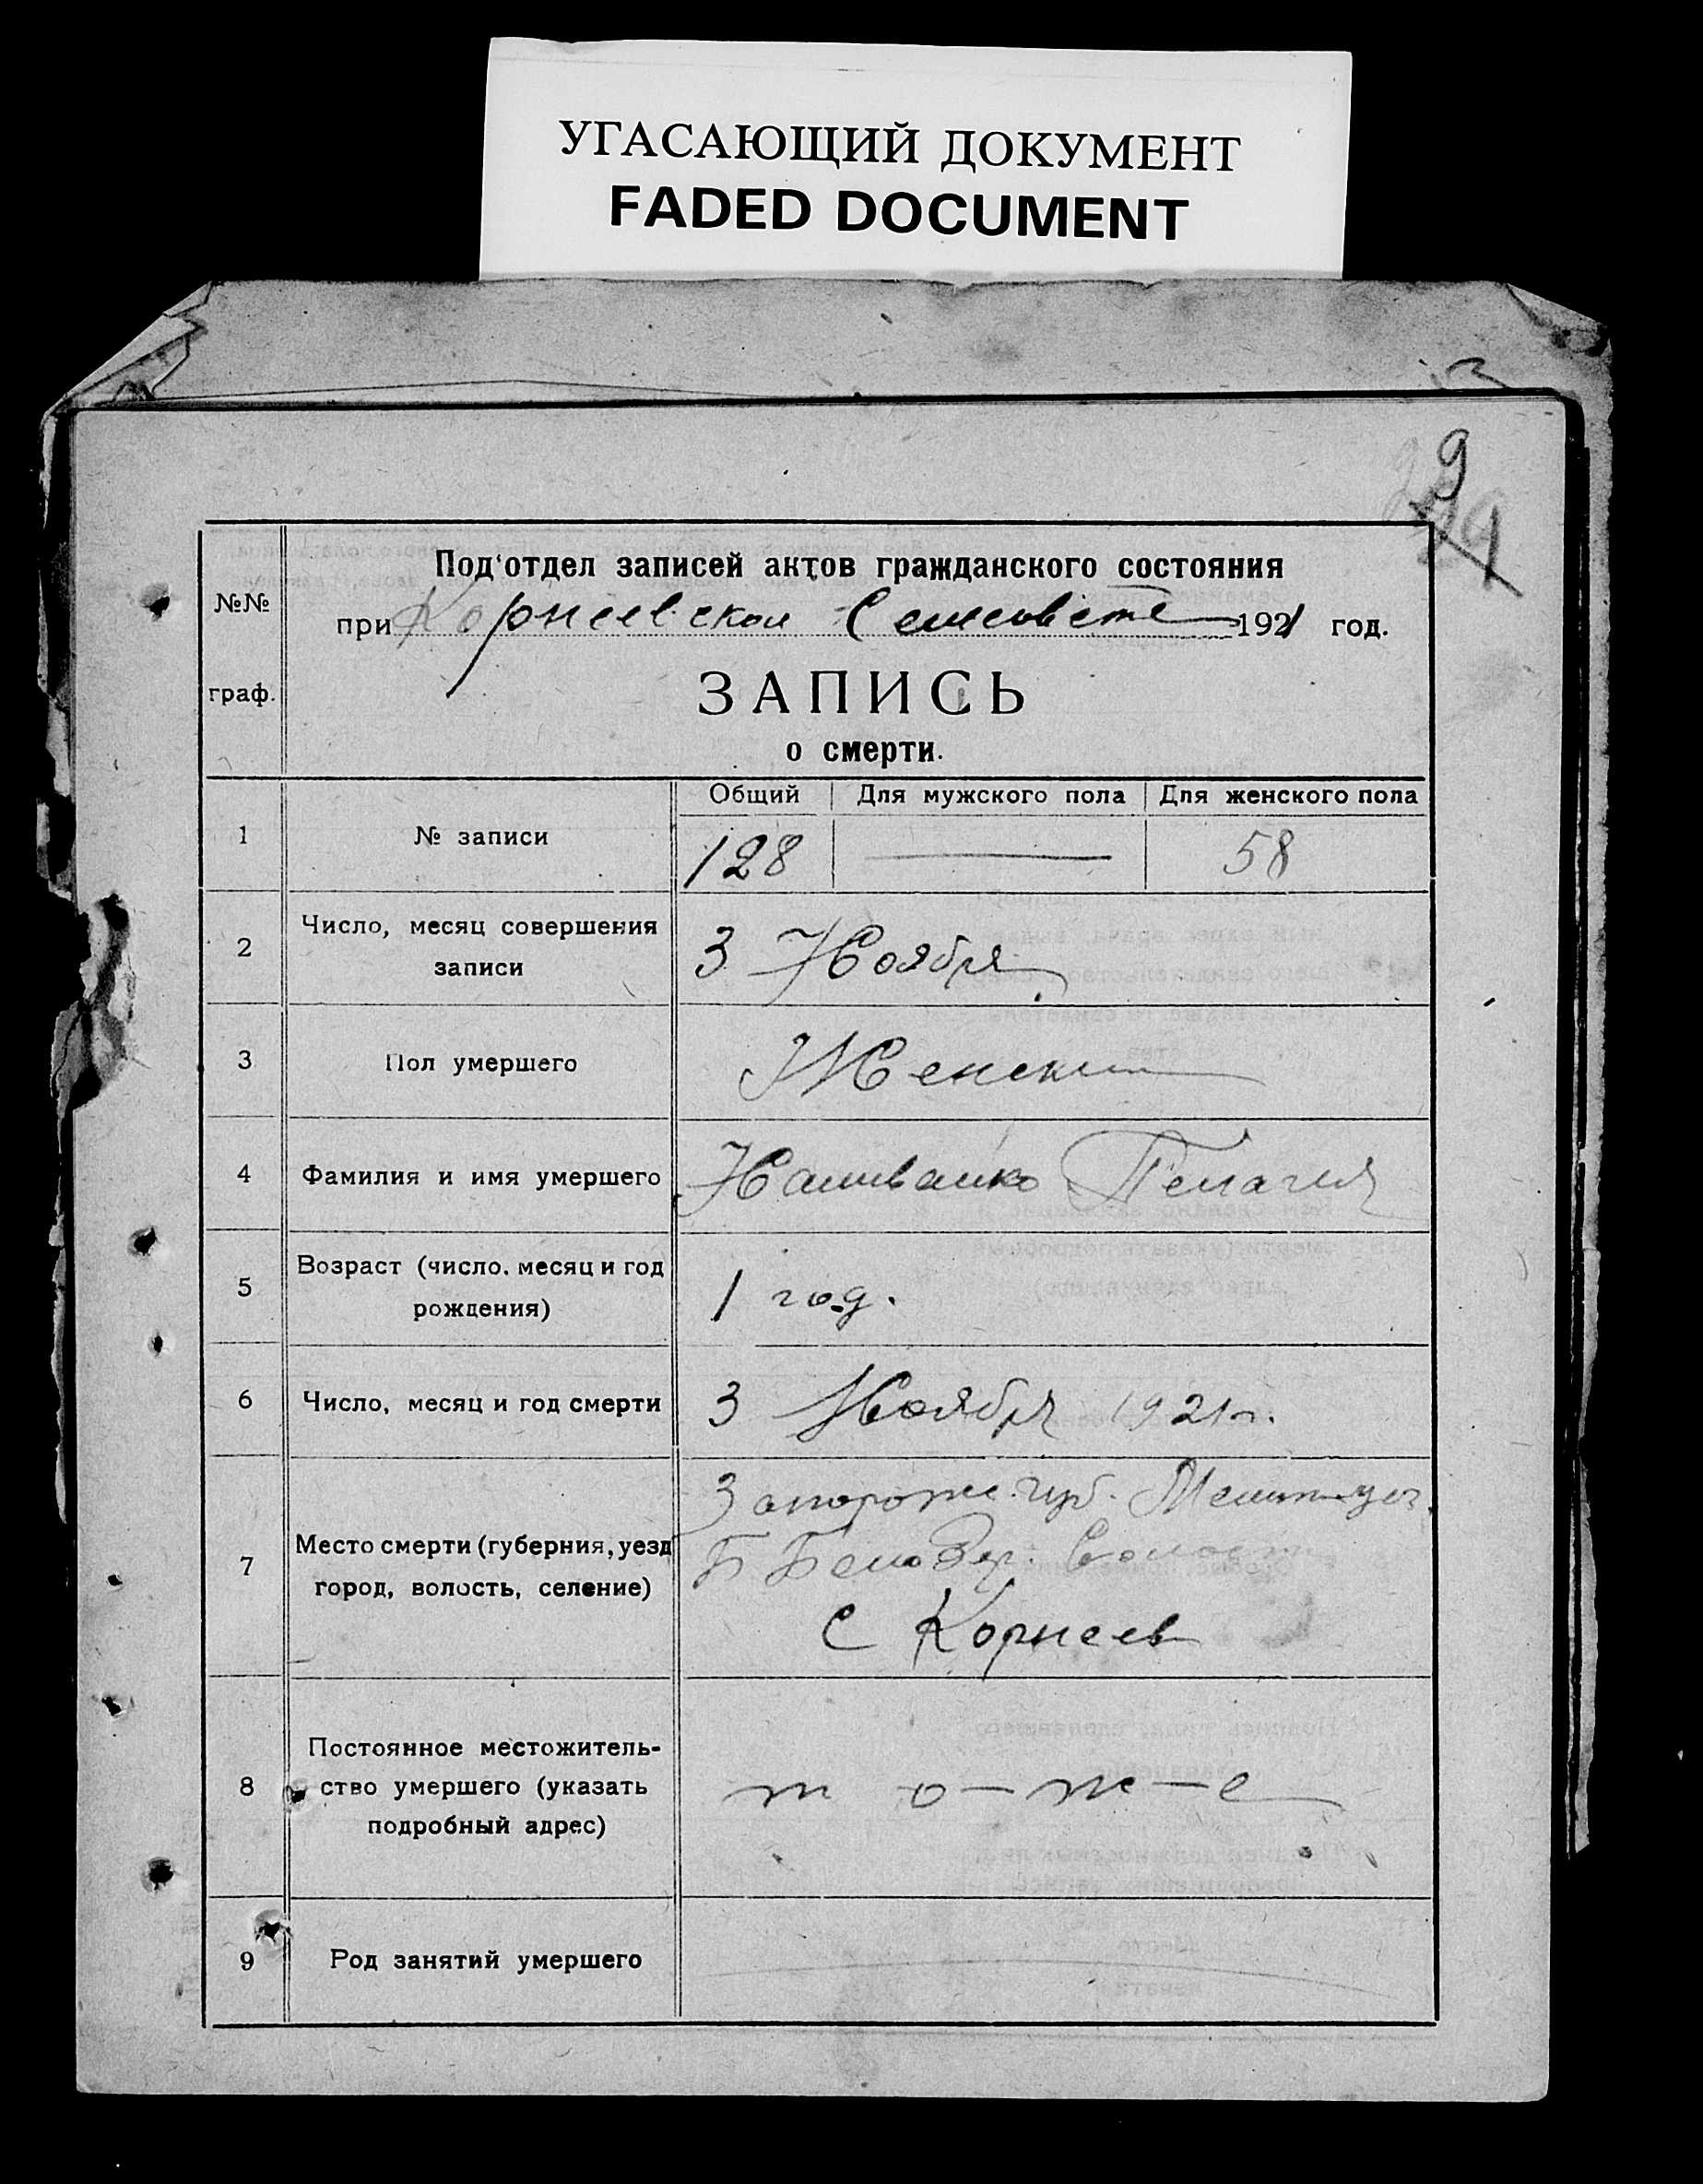 УГАСАЮЩИЙ ДОКУМЕНТ
FADED DOCUMENT
9
№№
граф.
Под'отдел записей актов гражданского состояния
при Корнеевском Сельсовете 1921 год.
ЗАПИСЬ
о смерти.
Общий Для мужского пола Для женского пола
1 № записи 128 — 58
2 Число, месяц совершения
записи
3 Ноября
3 Пол умершего Женский
4 Фамилия и имя умершего Наливайко Пелагия
5 Возраст (число, месяц и год
рождения)
1 год.
6 Число, месяц и год смерти 3 Ноября 1921 г.
7 Место смерти (губерния, уезд
город, волость, селение)
Запорож. губ. Мелит. уез.
Б Белозер. Волости
С Корнеев
8 Постоянное местожитель-
ство умершего (указать
подробный адрес)
т о — ж — е
9 Род занятий умершего